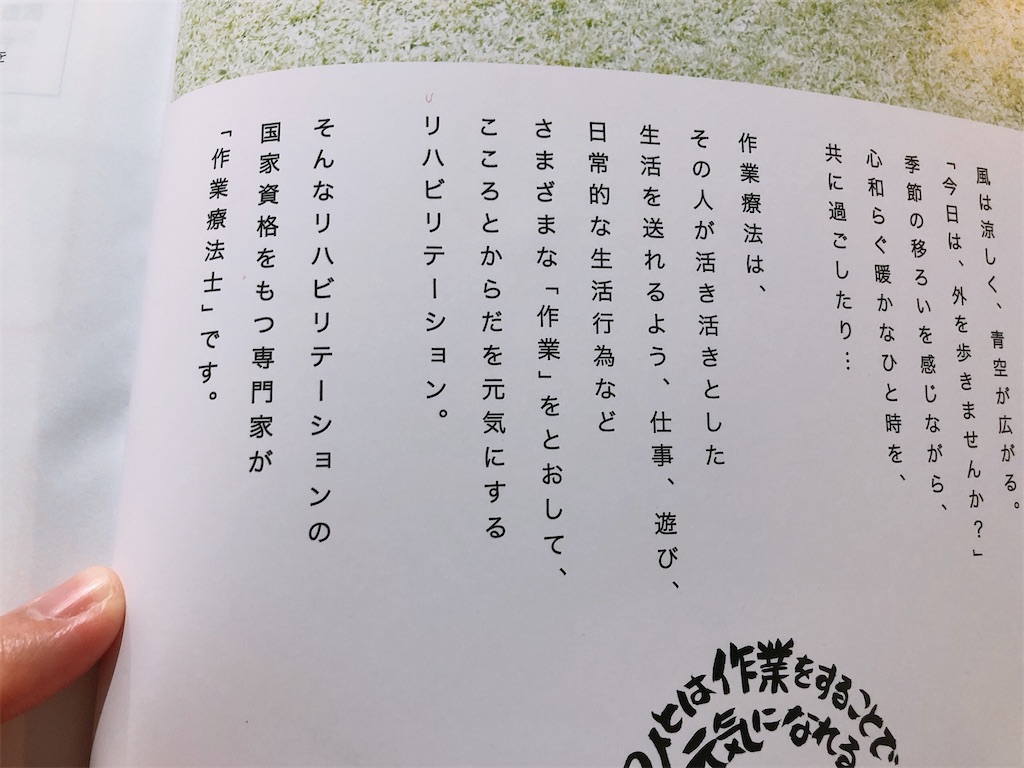 風は涼しく、青空が広がる。
「今日は、外を歩きませんか？」
季節の移ろいを感じながら、
心和らぐ暖かなひと時を、
共に過ごしたり…
作業療法は、
その人が活き活きとした
生活を送れるよう、仕事、遊び、
日常的な生活行為など
さまざまな「作業」をとおして、
こころとからだを元気にする
リハビリテーション。
そんなリハビリテーションの
国家資格をもつ専門家が
「作業療法士」です。
ひとは作業をすることで
元気になれる
を